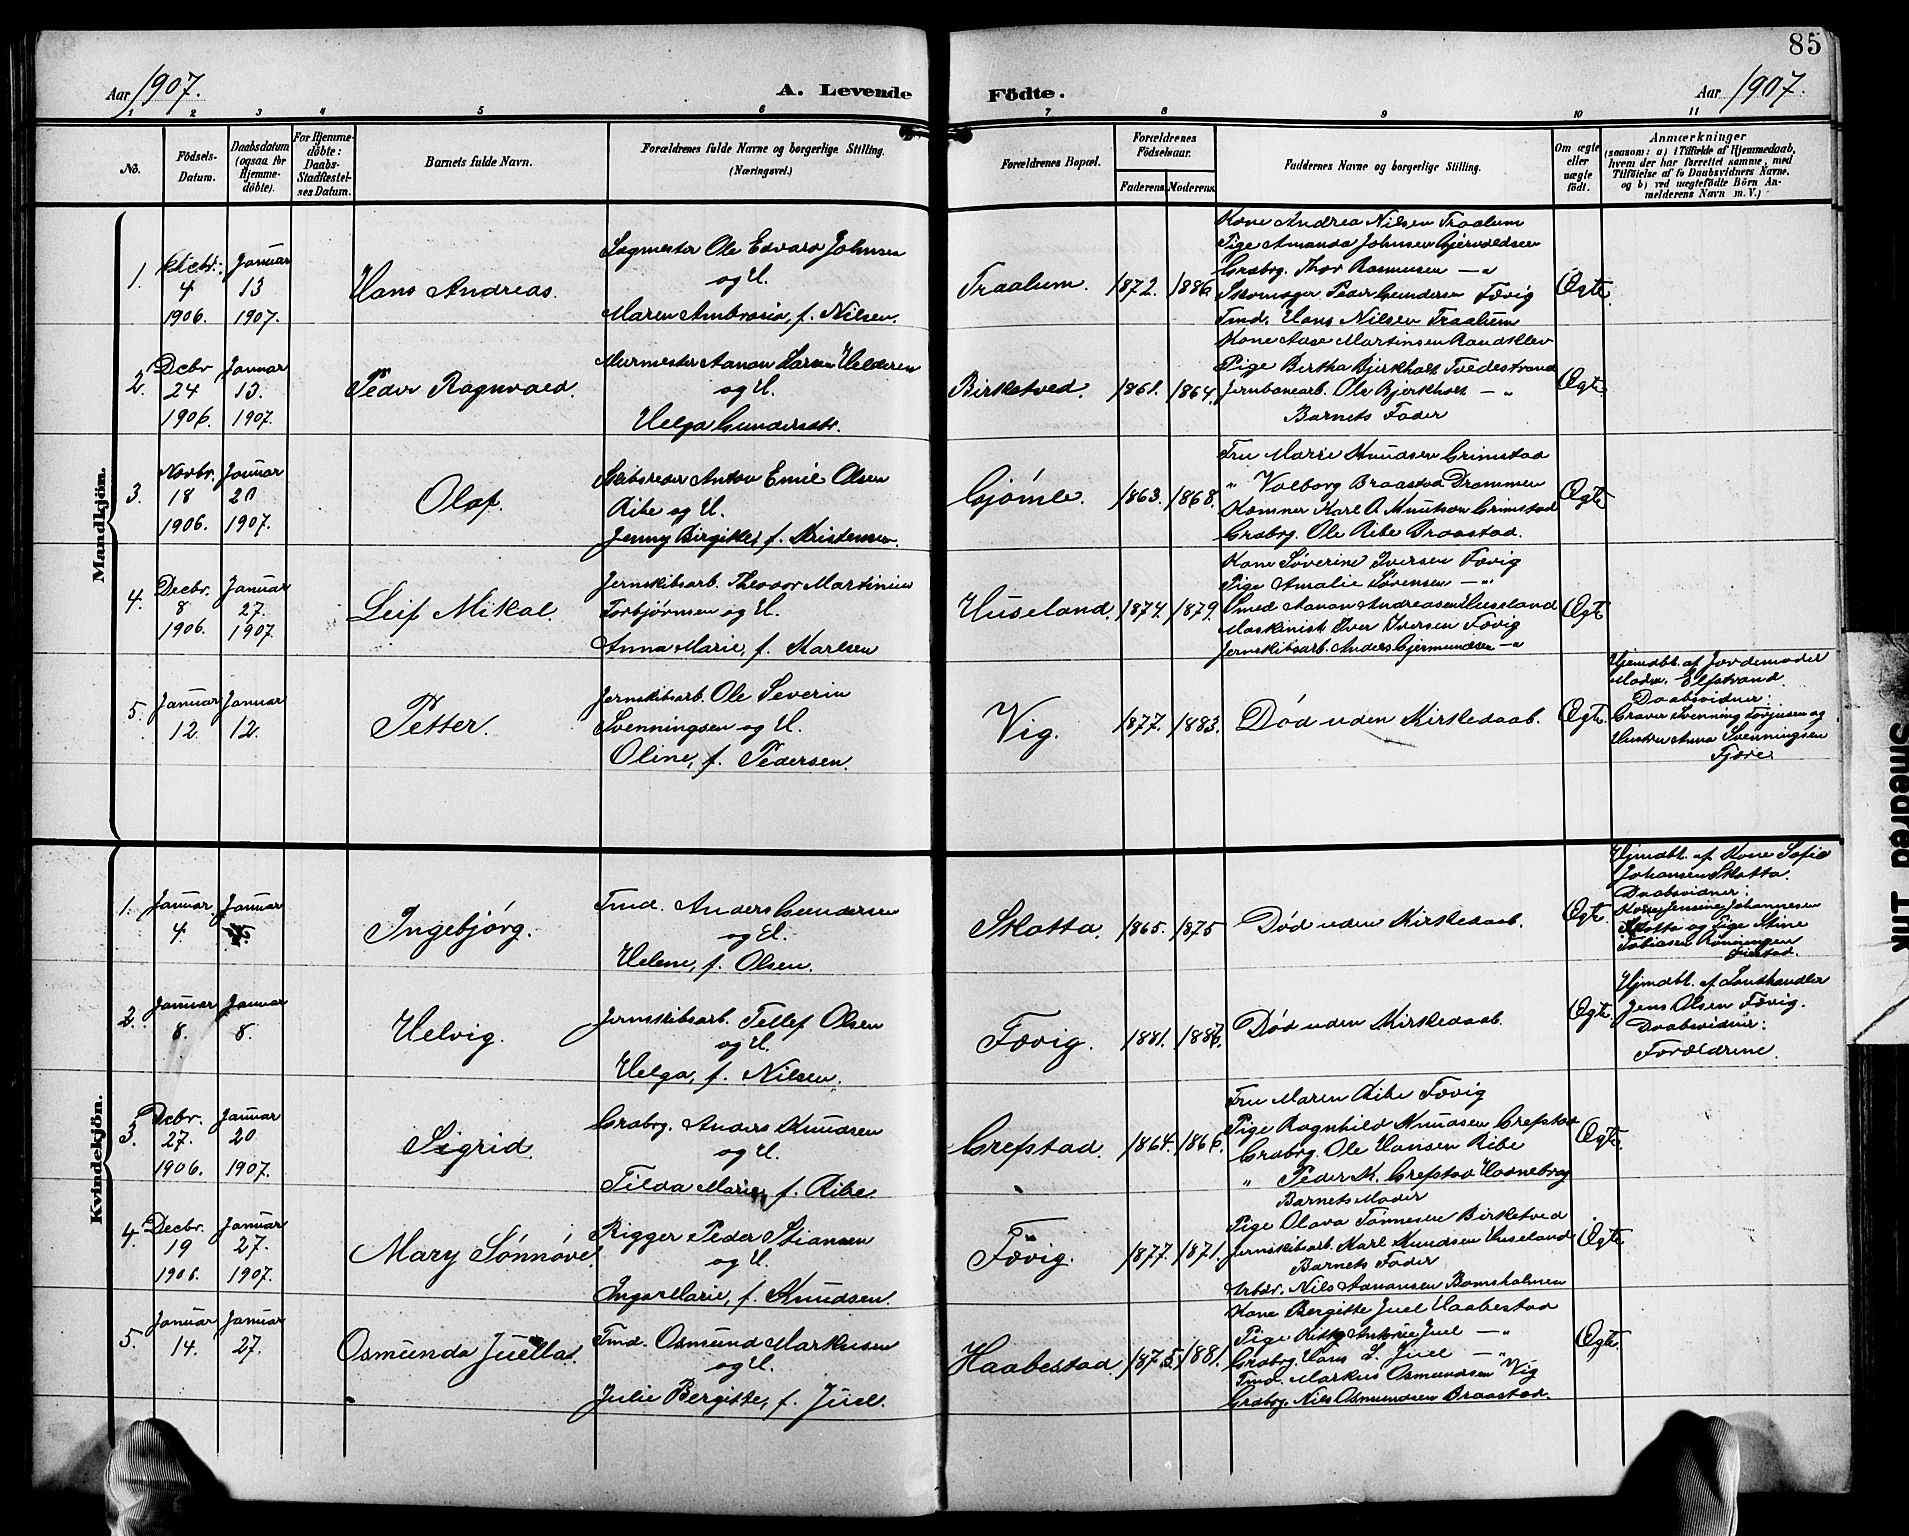 85
Aar 1907. A. Levende Födte. Aar 1907.
1 2 3 4 5 6 7 8 9 10 11
No.
Födsels-
Datum.
Daabsdatum
(ogsaa for
Hjemme-
döbte).
For Hjemme-
döbte:
Daabs-
Stadfæstel-
ses Datum.
Barnets fulde Navn.
Forældrenes fulde Navne og borgerlige Stilling.
(Næringsvei.)
Forældrenes Bopæl.
Forældrenes
Födselsaar.
Faderens. Moderens.
Faddernes Navne og borgerlige Stilling.
Om ægte
eller
uægte
födt.
Anmærkninger
(saasom: a) i Tilfælde af Hjemmedaab,
hvem der har forrettet samme, med
Tilföielse af to Daabsvidners Navne,
og b) ved uægtefödte Börn An-
melderens Navn m. V.)
Mandkjön.
1.
Oktbr.
4
1906.
Januar
13
1907.
Hans Andreas.
Sagmester Ole Edvard Johnsen
og H.
Maren Ambrosia, f. Nilsen.
Traalum.
1872. 1886
Kone Andrea Nilsen Traalum
Pige Amanda Johnsen Gjervoldsen
Grabrg. Thor Rasmusen — "
Skomager Peder Gundersen Fævig
Tmd. Hans Nilsen Traalum
Ægte
2.
Decbr
24
1906.
Januar
13.
1907.
Peder Ragnvald.
Murmester Aanon Larsen Helderen
og H.
Helga Gundersdtr.
Birketved.
1861. 1864.
Kone Aase Martinsen Randklev
Pige Bertha Bjerkholt Tvedestrand
Jernbanearb. Ole Bjerkholt — "
Barnets Fader
Ægte
3.
Novbr.
18
1906.
Januar
20
1907.
Olaf.
Skibsreder Anton Emil Olsen
Ribe og H.
Jenny Birgitte, f. Kristensen.
Gjömle.
1863. 1868.
Fru Marie Knudsen Grimstad
" Valborg Braastad Drammen
Kæmner Karl O. Knutson Grimstad
Grabrg. Ole Ribe Braastad.
Ægte
4.
Decbr.
8
1906.
Januar
27.
1907.
Leif Mikal.
Jernskibsarb. Theodor Martinius
Torbjörnsen og H.
Anna Marie, f. Karlsen
Huseland.
1874. 1879.
Kone Søverine Iversen Fævig
Pige Amalie Sørensen — "
Smed Aanon Andreasen Huseland
Maskinist Iver Iversen Fævig
Jernskibsarb. Anders Gjermundsen — "
Ægte
5.
Januar
12.
Januar
12.
Petter.
Jernskibsarb. Ole Severin
Svenningsen og H.
Oline, f. Pedersen.
Vig.
1877. 1883.
Død uden Kirkedaab.
Ægte.
Hjemdbt. af Jordemoder
Madm. Elfstrand.
Daabsvidner:
Graver Svenning Torjusen og
Hustru Anna Svenningsen
Fjære.
Kvindekjön.
1.
Januar
4.
Januar
Ingebjörg.
Tmd. Anders Gundersen
og H.
Helene, f. Olsen.
Skotta.
1865. 1875
Død uden Kirkedaab.
Ægte.
Hjmdbt. af Kone Sofie
Johansen Skotta.
Daabsvidner:
Kone Jensine Johannesen
Skotta og Pige Stine
Tobiasen Rønningen
2.
Januar
8.
Januar
8.
Helvig.
Jernskibsarb. Tellef Olsen
og H.
Helga, f. Nilsen.
Fævig.
1881.
Død uden Kirkedaab.
Ægte.
Hjmdbt. af Landhandler
Jens Olsen Fævig.
Daabsvidner:
Forældrene.
3.
Decbr.
27.
1906.
Januar
20
1907.
Sigrid.
Grabrg. Anders Knudsen
og H.
Tilda Marie, f. Ribe.
Grefstad.
1864. 1866.
Fru Maren Ribe Fævig
Pige Ragnhild Knudsen Grefstad
Grabrg. Ole Hansen Ribe
" Peder K. Grefstad Havnebrog
Barnets Moder
Ægte.
4.
Decbr.
19
1906.
Januar
27.
1907.
Mary Sønnøve.
Rigger Peder Stiansen
og H.
Inga Marie, f. Knudsen.
Fævig.
1877. 1871.
Pige Olava Tønnesen Birketved
Jernskibsarb. Karl Knudsen Huseland
Barnets Fader
Arbdr. Nils Aanonsen Bomsholmen
Ægte.
5.
Januar
14.
Januar
27.
Osmunda Juella.
Tmd. Osmund Markusen
og H.
Julie Bergitte, f. Juel.
Haabestad.
1875 1881.
Kone Bergitte Juel Haabestad
Pige Kitty Antonie Juel — "
Grabrg. Hans L. Juel — "
Tmd. Markus Osmundsen Vig
Grabrg. Nils Osmundsen Braastad.
Ægte.
Smeared Ink